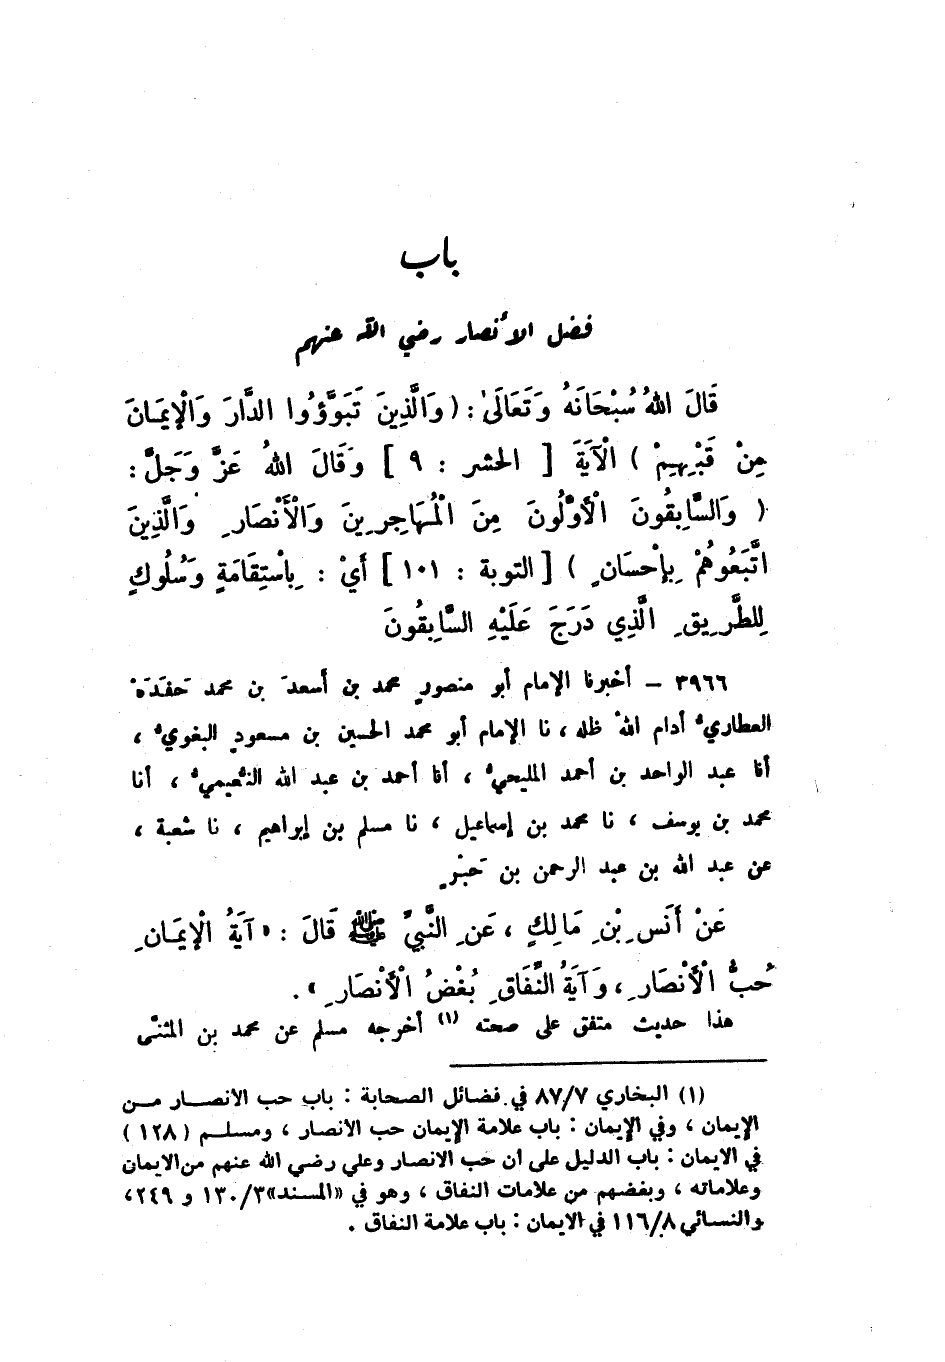 باب
فضل الأنصار رضي الله عنهم
قَالَ اللهُ سُبْحَانَهُ وَتَعَالَىٰ : ( وَالَّذِينَ تَبَوَّؤُوا الدَّارَ وَالْإِيمَانَ
مِنْ قَبْلِهِمْ ) الْآيَةَ [ الحشر : ٩ ] وَقَالَ اللهُ عَزَّ وَجَلَّ :
( وَالسَّابِقُونَ الْأَوَّلُونَ مِنَ الْمُهَاجِرِينَ وَالْأَنْصَارِ وَالَّذِينَ
اتَّبَعُوهُمْ بِإِحْسَانٍ ) [ التوبة : ١٠١ ] أَيْ : بِاسْتِقَامَةٍ وَسُلُوكٍ
لِلطَّرِيقِ الَّذِي دَرَجَ عَلَيْهِ السَّابِقُونَ
٣٩٦٦ – أخبرنا الإمام أبو منصورٍ محمد بن أسعدَ بن محمد حَفَدَة
العطاريُّ أدام اللهُ ظله ، نا الإمام أبو محمد الحسين بن مسعودٍ البغويُّ ،
أنا عبد الواحد بن أحمد المليحيُّ ، أنا أحمد بن عبد الله النُّعيميُّ ، أنا
محمد بن يوسف ، نا محمد بن إسماعيل ، نا مسلم بن إبراهيم ، نا شعبة ،
عن عبد الله بن عبد الرحمن بن حَبْرٍ
عَنْ أَنَسِ بْنِ مَالِكٍ ، عَنِ النَّبِيِّ ﷺ قَالَ : « آيَةُ الْإِيمَانِ
حُبُّ الْأَنْصَارِ ، وَآيَةُ النِّفَاقِ بُغْضُ الْأَنْصَارِ » .
هذا حديث متفق على صحته (١) أخرجه مسلم عن محمد بن المثنَّى
(١) البخاري ٨٧/٧ في فضائل الصحابة : باب حب الانصار من
الإيمان ، وفي الإيمان : باب علامة الإيمان حب الانصار ، ومسلم ( ١٢٨ )
في الايمان : باب الدليل على أن حب الانصار وعلي رضي الله عنهم من الايمان
وعلاماته ، وبغضهم من علامات النفاق ، وهو في «المسند» ١٣٠/٣ و ٢٤٩،
والنسائي ١١٦/٨ في الايمان : باب علامة النفاق .